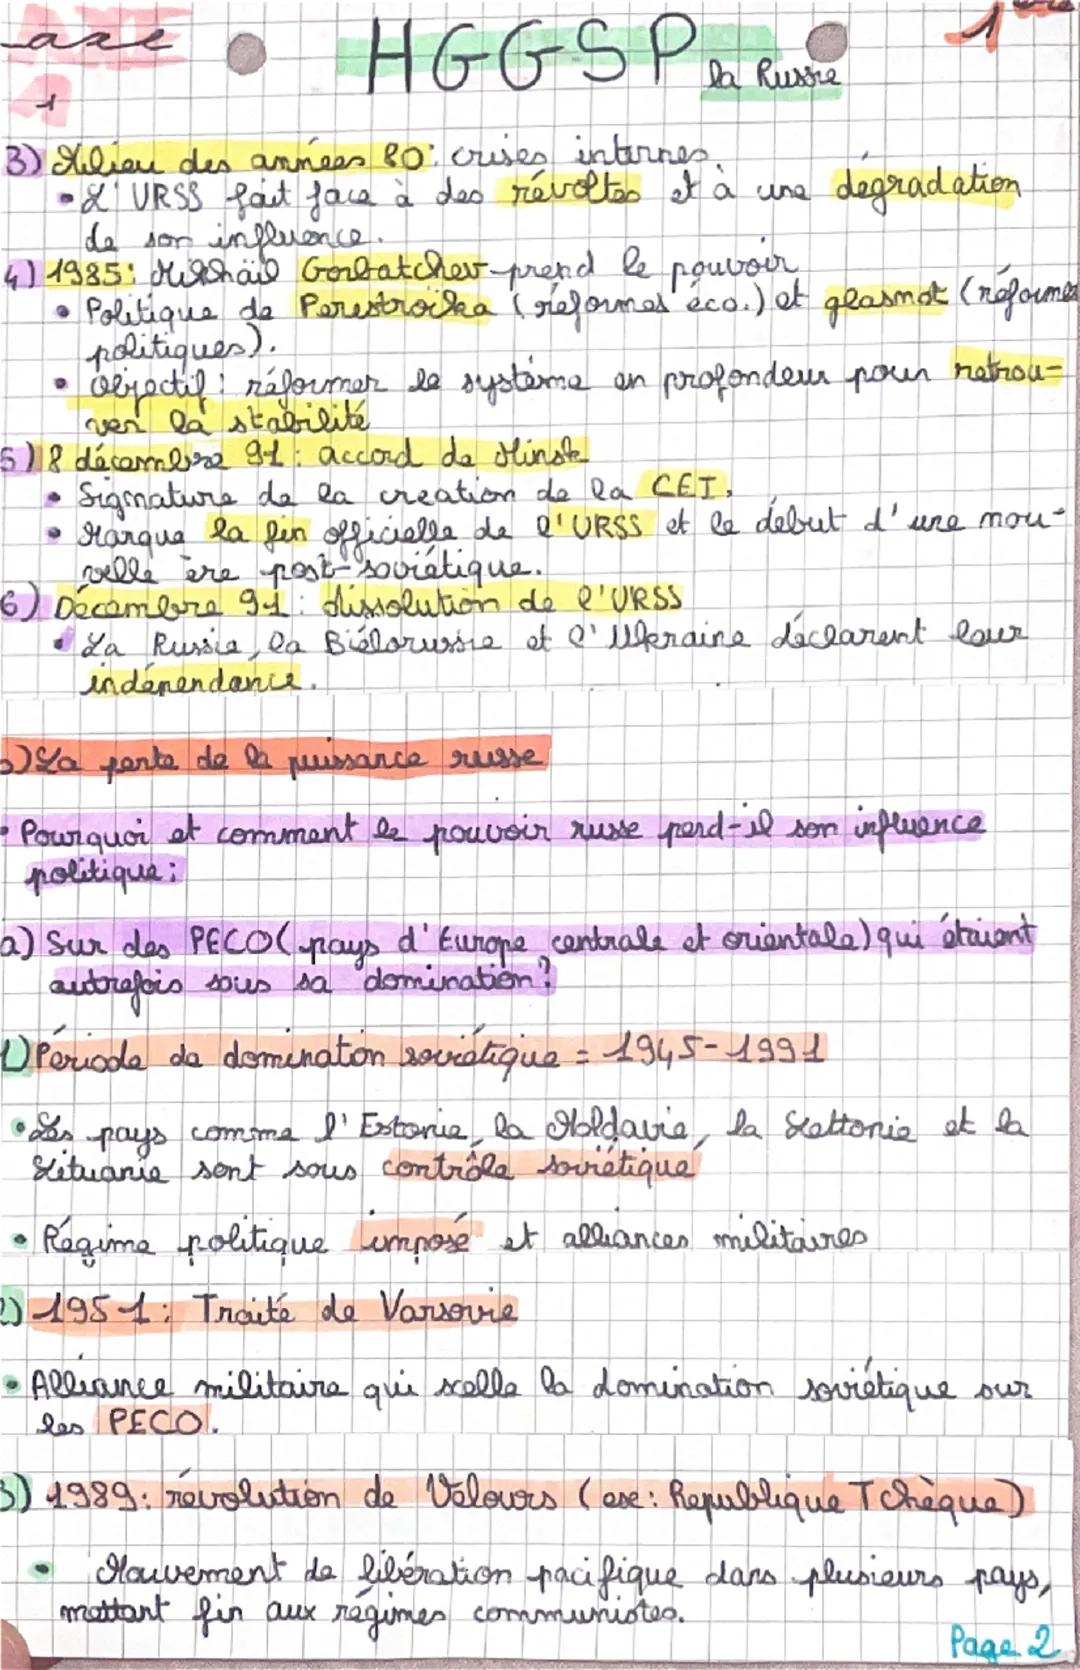 axe 1
HGGSP
1ère
la Russie
3) Milieu des années 80: crises internes.
• L'URSS fait face à des révoltes et à une dégradation
de son influence.
4) 1985: Mikhaïl Gorbatchev prend le pouvoir
• Politique de Perestroïka (réformes éco.) et glasnot (réformes
politiques).
• Objectif: réformer le système en profondeur pour retrou-
ver la stabilité
5) 8 décembre 91: accord de Minsk
• Signature de la création de la CEI.
• Marque la fin officielle de l'URSS et le début d'une nou-
velle ère post-soviétique.
6) Décembre 91: dissolution de l'URSS
• La Russie, la Biélorussie et l'Ukraine déclarent leur
indépendance.
b) La perte de la puissance russe
• Pourquoi et comment le pouvoir russe perd-il son influence
politique:
a) Sur des PECO (pays d'Europe centrale et orientale) qui étaient
autrefois sous sa domination?
1) Période de dominaton soviétique = 1945-1991
• Les pays comme l'Estonie, la Moldavie, la Lettonie et la
Lituanie sont sous contrôle soviétique
• Régime politique imposé et alliances militaires
2) 1951: Traité de Varsovie
• Alliance militaire qui scelle la domination soviétique sur
les PECO.
3) 1989: révolution de Velours (exe: Republique Tchèque)
• Mouvement de libération pacifique dans plusieurs pays,
mettant fin aux régimes communistes.
Page 2